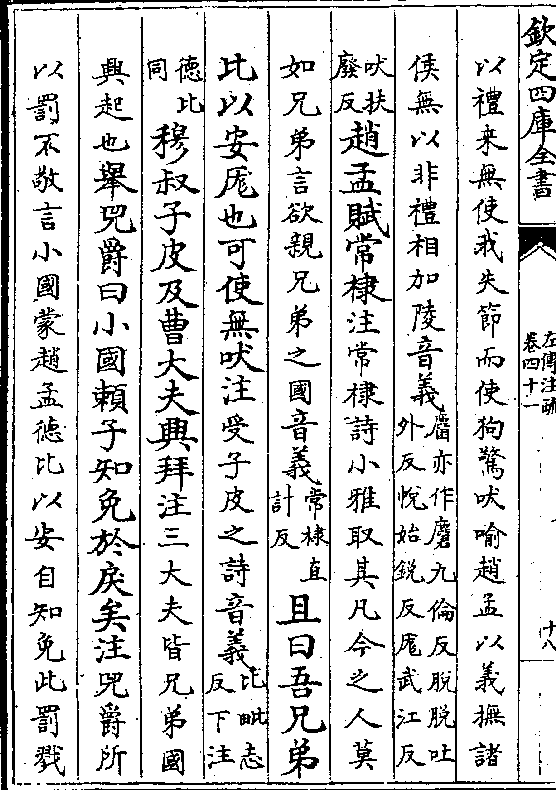 欽定四庫全書
左傳注疏
卷四十一
十八
以禮来無使我失節而使狗驚吠喻趙孟以義撫諸
侯無以非禮相加陵音義麕亦作麏九倫反脱脱吐
外反帨始鋭反厖武江反
吠扶
廢反趙孟賦常棣注常棣詩小雅取其凡今之人莫
如兄弟言欲親兄弟之國音義常棣直
計反且曰吾兄弟
比以安厖也可使無吠注受子皮之詩音義比毗志
反下注
德比
同穆叔子皮及曹大夫興拜注三大夫皆兄弟國
興起也舉兕爵曰小國賴子知免於戾矣注兕爵所
以罰不敬言小國蒙趙孟德比以安自知免此罰戮